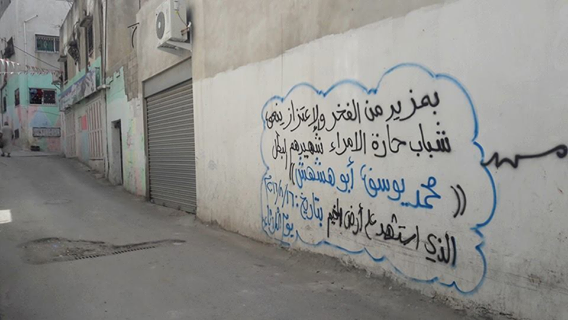 بمزيد من الفخر والإعتزاز ينعى
شباب حارة الامراء شهيدهم البطل
((محمد يوسف أبو هشهش))
الذي استشهد على أرض المخيم بتاريخ
يوم الثلاثاء